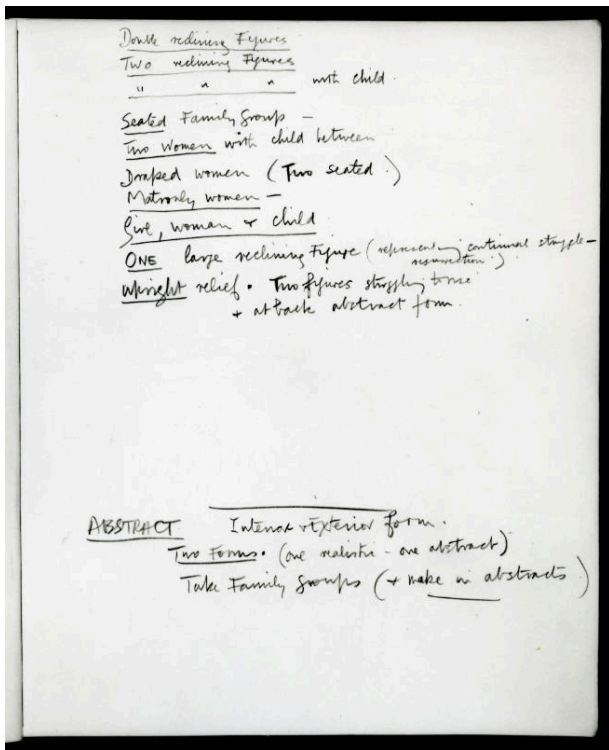 Double reclining Figures
Two reclining Figures
" " " with child.
Seated Family Group –
Two Women with child between
Draped women (Two seated.)
Matronly women –
Girl, woman + child
ONE large reclining Figure (representing continual struggle – resurrection.)
Upright relief. Two figures struggling to rise
+ at back abstract form.
ABSTRACT Interior + Exterior form.
Two Forms. (one realistic - one abstract)
Take Family Groups (+ make in abstracts)